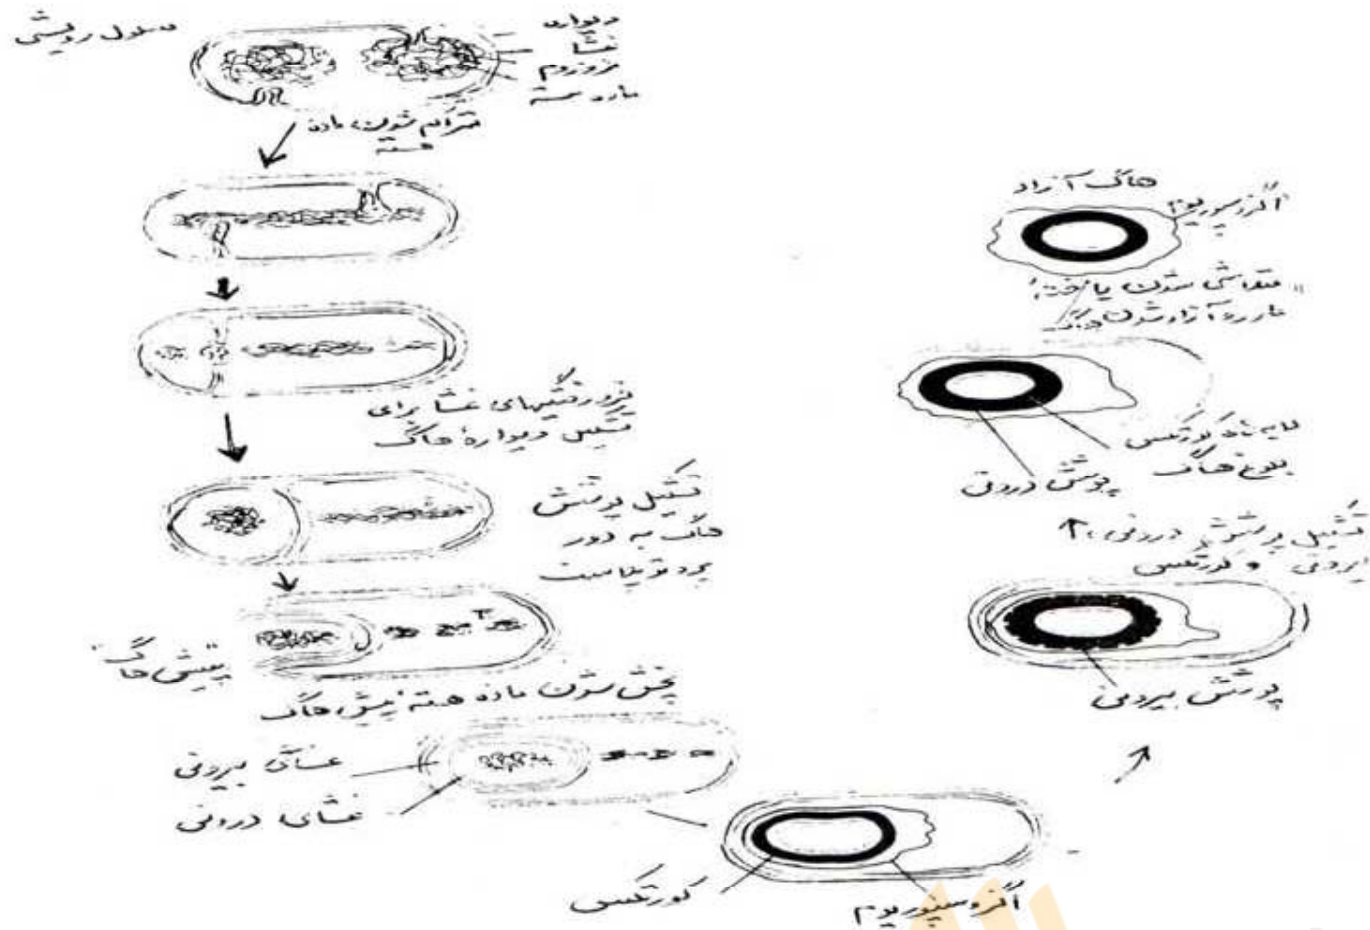 سلول رویشی
دیواره
غشا
مزوزوم
ماده هسته
متراکم شدن ماده
هسته
فرورفتگیهای غشا برای
تشکیل دیواره هاگ
تشکیل پوشش
هاگ به دور
پروتوپلاست
پیش هاگ
پخش شدن ماده هسته پیش هاگ
غشای بیرونی
غشای درونی
کورتکس
اگزوسپوریوم
پوشش بیرونی
تشکیل پوشش درونی،
بیرونی و کورتکس
پوشش درونی
لایه کورتکس
بلوغ هاگ
متلاشی شدن یاخته
آزاد شدن
اگزوسپوریوم
هاگ آزاد